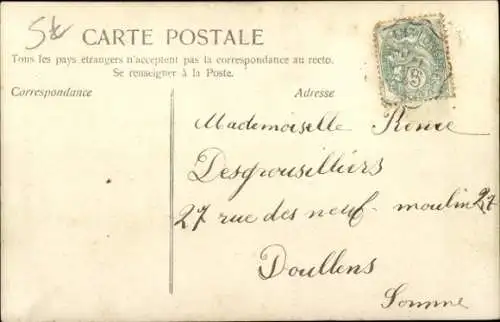 5t
CARTE POSTALE
Tous les pays étrangers n'acceptent pas la correspondance au recto.
Se renseigner à la Poste.
Correspondance
Adresse
Mademoiselle Renée
Desgrousilliers
27 rue des neuf-moulin 27
Doullens
Somme